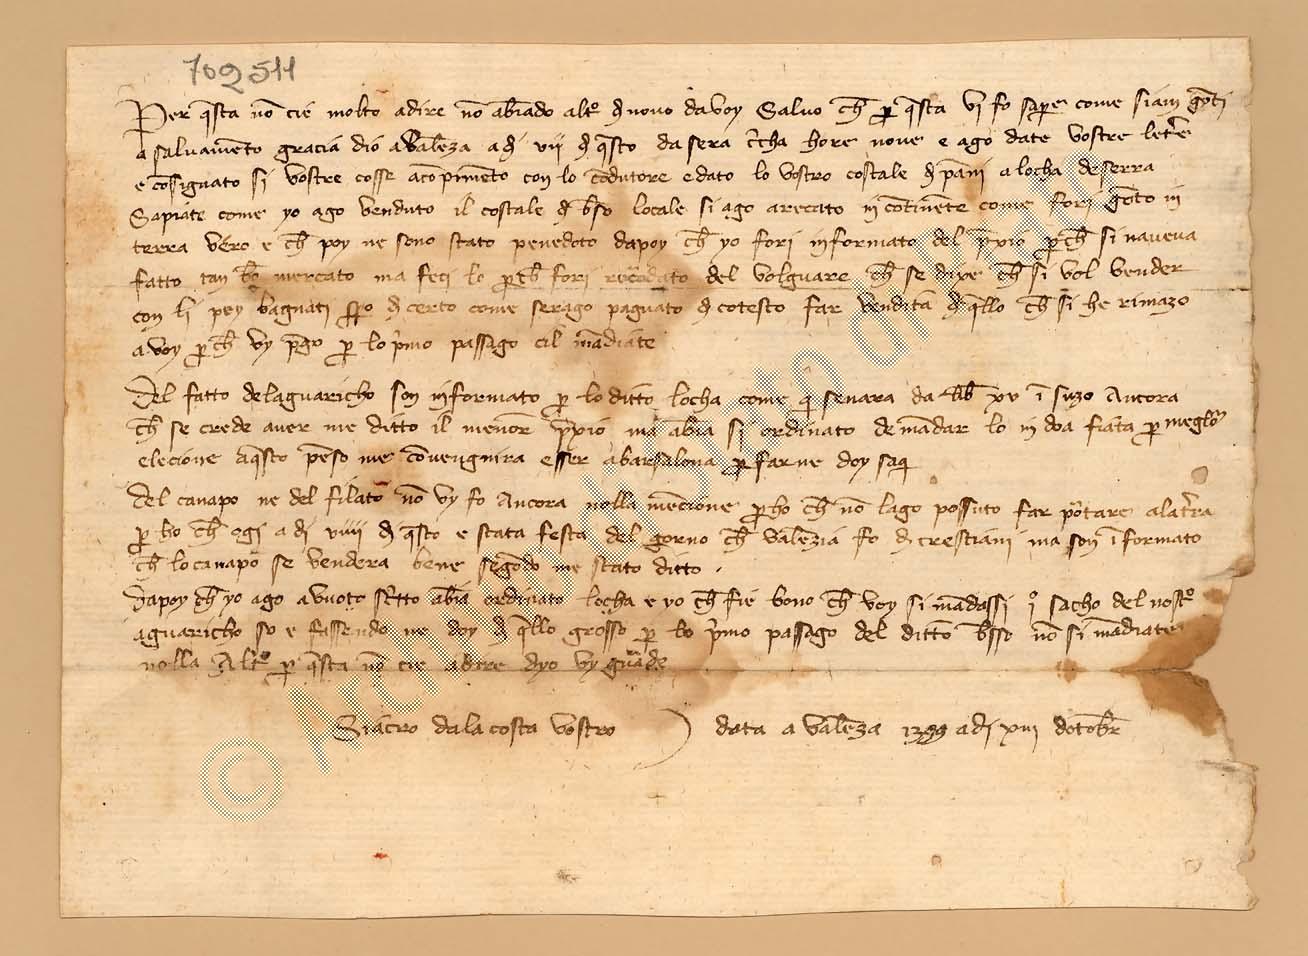 709511
Per qsta nō cie molto adire nō abiādo altº d novo da voy Salvo ch̄ p qsta vi fo sape come siam gōti
a salvamēto gracia dio a valēza a dj vij d qsto da sera c̄cha hore nove e ago date vostre letr̄e
e cōsignato si vostre cosse acōpimēto con lo cōdutore e dato lo vostro costale d pāni a locha de serra
Sapiate come yo ago venduto il costale d locale si ago arecato in cōtinēte come fori gōto in
terra vero e ch̄ poy ne sono stato penedoto dapoy ch̄ yo fori informato del p̄xio p ch̄ si naveva
fatto tan bō mercato ma feci lo p ch̄ fori del volguare ch̄ se dixe ch̄ si vol vender
con li pey bagnati d certo come serago paguato d cotesto far venditā d qllo ch̄ si he rimazo
a voy p ch̄ vy p̄go p lo p̄mo passago cil mādiate
Del fatto delaguaricho son informato p lo ditto locha come senara da lib̄ xv ī suzo Ancora
ch̄ se crede aver me ditto il menor p̄xio ma abia si ordinato de mādar lo in doa fiata p meglō
elecione aqsto pēso me cōvengnira esser a barsalona p farne doy saq
Del canapo ne del filato nō vy fo Ancora nolla mēcione p ho ch̄ nō lago possuto far pōtare alat̄ra
p ho ch̄ ogi a dj viiij d qsto e stata festa del gorno ch̄ valēzia fo d crestiani ma son īformato
ch̄ lo canapo se vendera bene segōdo me stato ditto .
Dapoy ch̄ yo ago avuoto sc̄tto abia ordinato locha e yo ch̄ fie bono ch̄ voy si mādassi jº sacho del nostº
aguaricho so e fassendo ne doy d qllo grosso p lo p̄mo passago del ditto nō si mādiate
nolla Altº p qsta nō cie adire dyo vy guāde
dala costa vostro data a valēza 1399 adj xiij dotobr̄
© Archivio di Stato di Prato